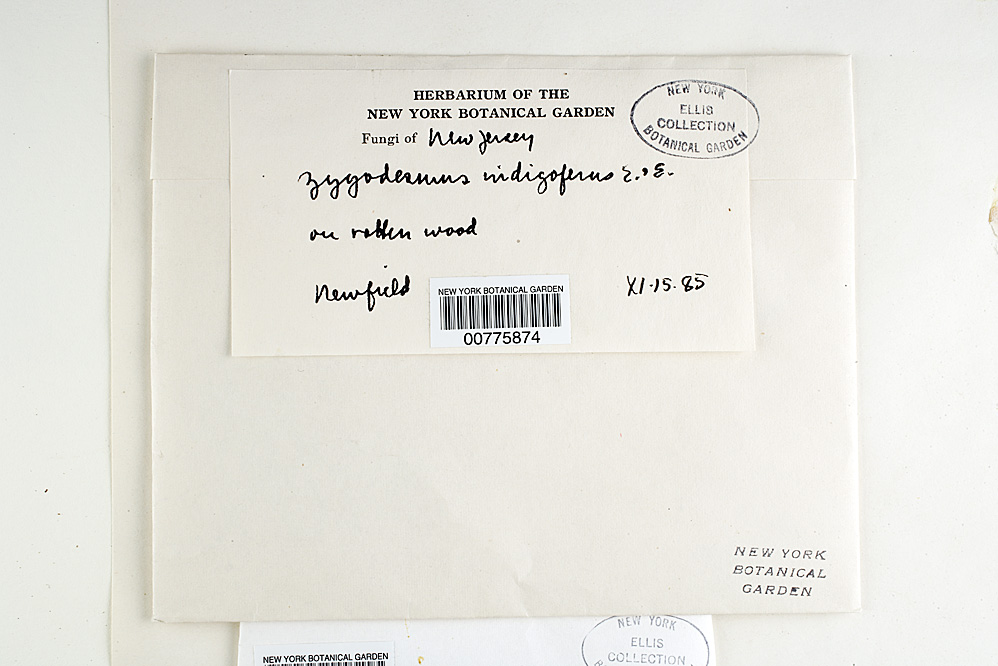 HERBARIUM OF THE
NEW YORK BOTANICAL GARDEN
Fungi of New Jersey
NEW YORK
ELLIS
COLLECTION
BOTANICAL GARDEN
Zygodesmus indigoferus E. & E.
on rotten wood
Newfield
XI-15-85
NEW YORK BOTANICAL GARDEN
00775874
NEW YORK
BOTANICAL
GARDEN
NEW YORK
ELLIS
COLLECTION
NEW YORK BOTANICAL GARDEN